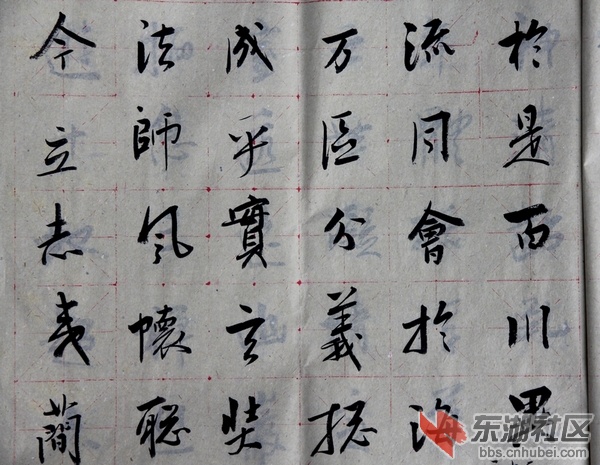 於是百川異
流同會於海
万區分義揔
成乎實玄奘
法師夙懷聡
令立志夷簡
东湖社区
bbs.cnhubei.com